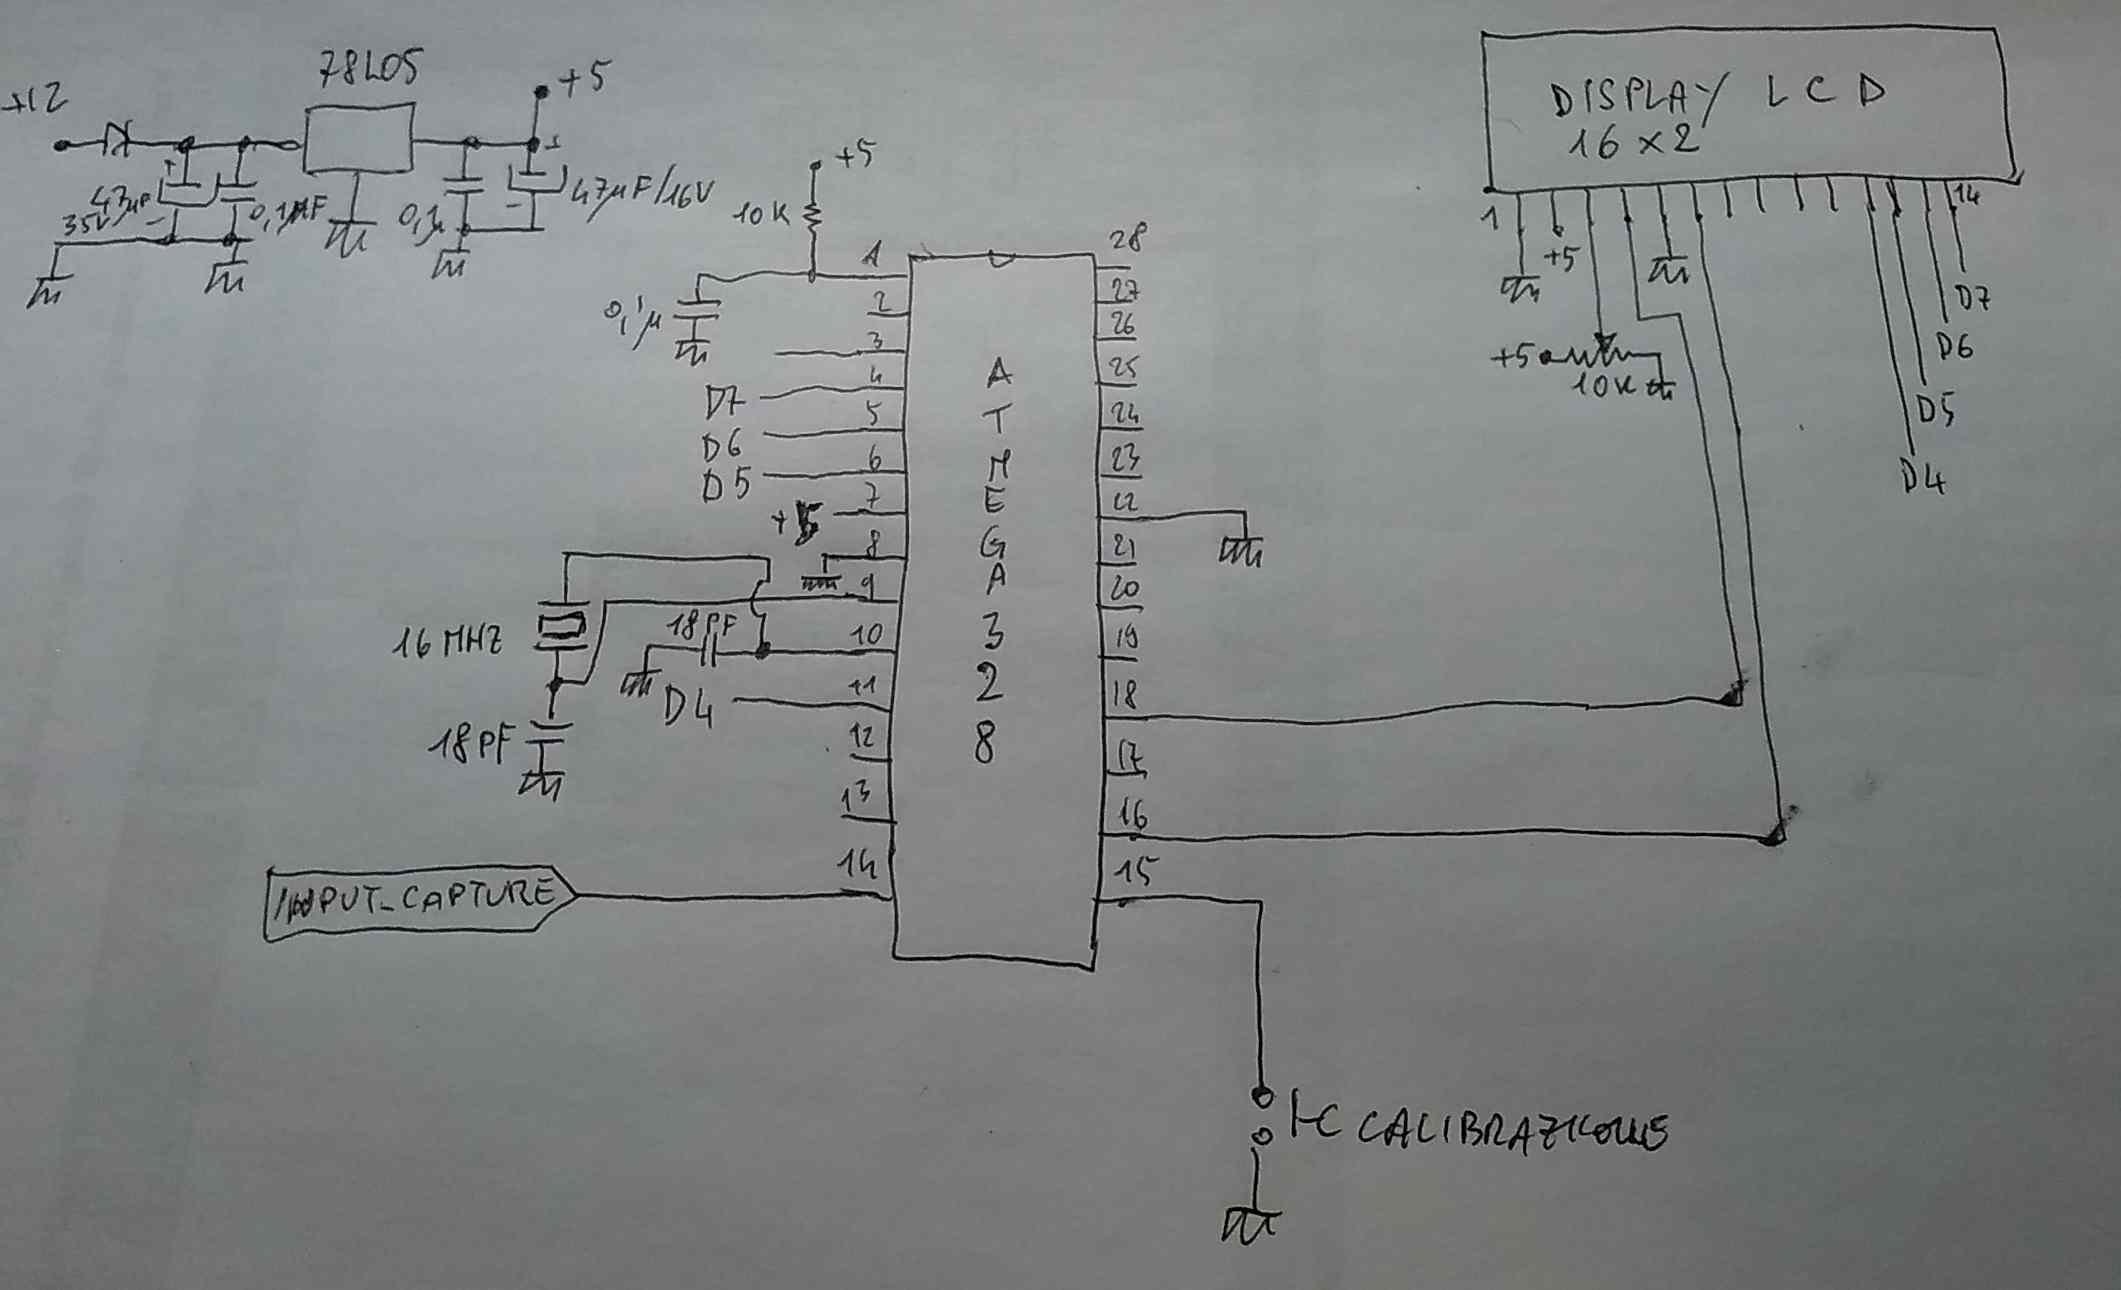 +12
78L05
+5
47µF
35V
0,1µF
0,1µ
47µF/16V
+5
10K
0,1µ
1
2
3
4
5
6
7
8
9
10
11
12
13
14
D7
D6
D5
+5
16 MHZ
18PF
18PF
D4
INPUT_CAPTURE
ATMEGA328
28
27
26
25
24
23
22
21
20
19
18
17
16
15
DISPLAY LCD
16x2
1
14
+5
+5
10K
D7
D6
D5
D4
CALIBRAZIONE